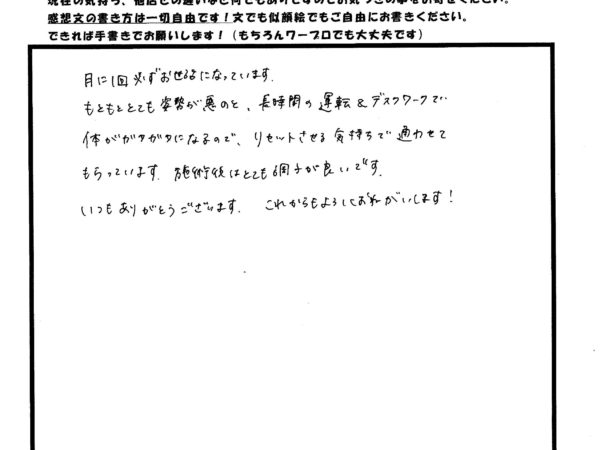 現在の気持ち、他店との違いなど何でもありですのでお気づきの事をお寄せください。
感想文の書き方は一切自由です！文でも似顔絵でもご自由にお書きください。
できれば手書きでお願いします！（もちろんワープロでも大丈夫です）
月に1回必ずお世話になっています.
もともととても姿勢が悪のと、長時間の運転＆デスクワークで
体がガタガタになるので、リセットさせる気持ちで通わせて
もらっています. 施術後はとても調子が良いです.
いつもありがとうございます. これからもよろしくおねがいします！